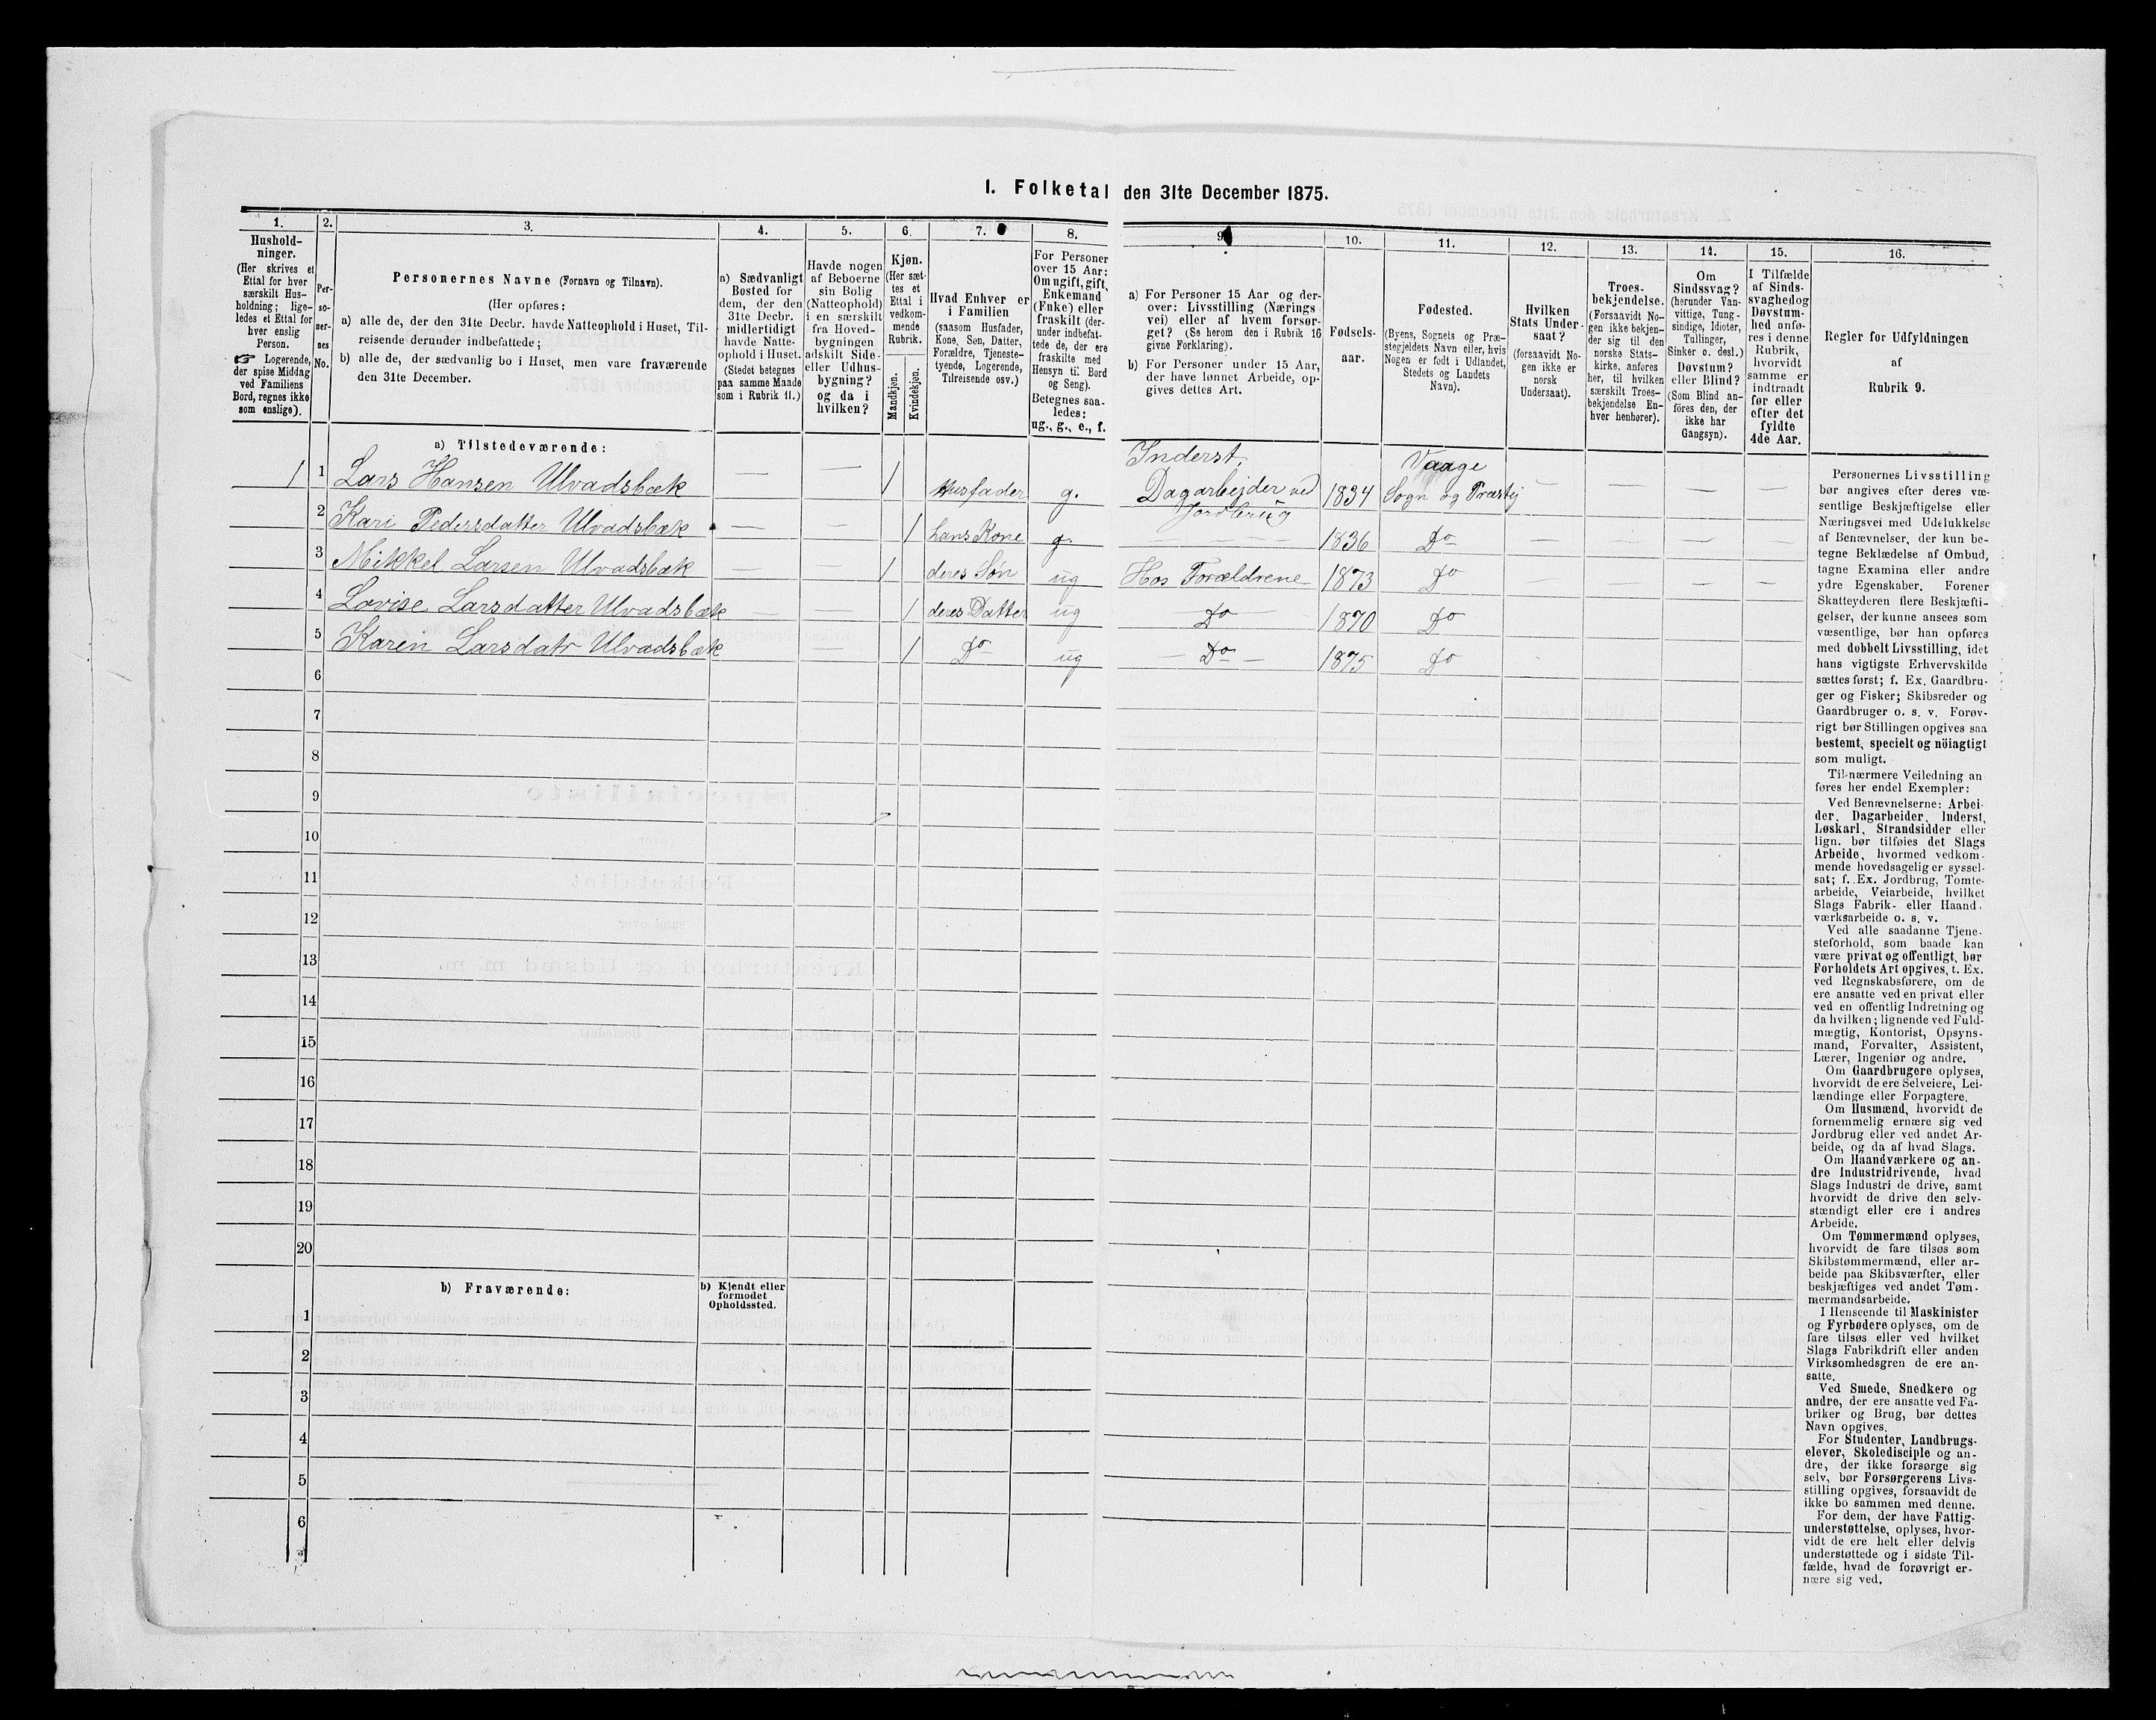 I. Folketal den 31te December 1875.
1.
Hushold-
ninger.
(Her skrives et
Ettal for hver
særskilt Hus-
holdning; lige-
ledes et Ettal for
hver enslig
Person.
☞ Logerende,
der spise Middag
ved Familiens
Bord, regnes ikke
som enslige).
2.
Per-
so-
ner-
nes
No.
3.
Personernes Navne (Fornavn og Tilnavn).
(Her opføres:
a) alle de, der den 31te Decbr. havde Natteophold i Huset, Til-
reisende derunder indbefattede;
b) alle de, der sædvanlig bo i Huset, men vare fraværende
den 31te December.
4.
a) Sædvanligt
Bosted for
dem, der den
31te Decbr.
midlertidigt
havde Natte-
ophold i Huset.
(Stedet betegnes
paa samme Maade
som i Rubrik 11.)
5.
Havde nogen
af Beboerne
sin Bolig
(Natteophold)
i en særskilt
fra Hoved-
bygningen
adskilt Side-
eller Udhus-
bygning?
og da i
hvilken?
6.
Kjøn.
(Her sæt-
tes et
Ettal i
vedkom-
mende
Rubrik.
Mandkjøn.
Kvindekjøn.
7.
Hvad Enhver er
i Familien
(saasom Husfader,
Kone, Søn, Datter,
Forældre, Tjeneste-
tyende, Logerende,
Tilreisende osv.)
8.
For Personer
over 15 Aar:
Om ugift, gift,
Enkemand
(Enke) eller
fraskilt (der-
under indbefat-
tede de, der ere
fraskilte med
Hensyn til Bord
og Seng).
Betegnes saa-
ledes:
ug., g., e., f.
9.
a) For Personer 15 Aar og der-
over: Livsstilling (Nærings
vei) eller af hvem forsør-
get? (Se herom den i Rubrik 16
givne Forklaring).
b) For Personer under 15 Aar,
der have lønnet Arbeide, op-
gives dettes Art.
10.
Fødsels-
aar.
11.
Fødested.
(Byens, Sognets og Præ-
stegjeldets Navn eller, hvis
Nogen er født i Udlandet,
Stedets og Landets
Navn).
12.
Hvilken
Stats Under-
saat?
(forsaavidt No-
gen ikke er
norsk
Undersaat).
13.
Troes-
bekjendelse.
(Forsaavidt No-
gen ikke bekjen-
der sig til den
norske Stats-
kirke, anføres
her, til hvilken
særskilt Troes-
bekjendelse En-
hver henhører).
14.
Om
Sindssvag?
(herunder Van-
vittige, Tung-
sindige, Idioter,
Tullinger,
Sinker o. desl.)
Døvstum?
eller Blind?
(Som Blind an-
føres den, der
ikke har
Gangsyn).
15.
I Tilfælde
af Sinds-
svaghed og
Døvstum-
hed anfø-
res i denne
Rubrik,
hvorvidt
samme er
indtraadt
før eller
efter det
fyldte
4de Aar.
16.
Regler for Udfyldningen
af
Rubrik 9.
a) Tilstedeværende:
1 1 Lars Hansen Ulvadsbæk — — 1 Husfader g. Inderst, Dagarbejder ved Jordbrug 1834 Vaage Sogn og Præstej — — — —
2 Kari Pedersdatter Ulvadsbæk — — 1 hans Kone g. — — — — 1836 Do — — — —
3 Mikkel Larsen Ulvadsbæk — — 1 deres Søn ug Hos Forældrene 1873 Do — — — —
4 Lovise Larsdatter Ulvadsbæk — — 1 deres Datter ug Do 1870 Do
5 Karen Larsdatr Ulvadsbæk — 1 Do ug — Do — 1875 Do
6
7
8
9
10
11
12
13
14
15
16
17
18
19
20
b) Fraværende:
b) Kjendt eller
formodet
Opholdssted.
1
2
3
4
5
6
Personernes Livsstilling
bør angives efter deres væ-
sentlige Beskjæftigelse eller
Næringsvei med Udelukkelse
af Benævnelser, der kun be-
tegne Beklædelse af Ombud,
tagne Examina eller andre
ydre Egenskaber. Forener
Skatteyderen flere Beskjæfti-
gelser, der kunne ansees som
væsentlige, bør han opføres
med dobbelt Livsstilling, idet
hans vigtigste Erhvervskilde
sættes først; f. Ex. Gaardbru-
ger og Fisker; Skibsreder og
Gaardbruger o. s. v. Forøv-
rigt bør Stillingen opgives saa
bestemt, specielt og nöiagtigt
som muligt.
Til nærmere Veiledning an
føres her endel Exempler:
Ved Benævnelserne: Arbei-
der, Dagarbeider, Inderst,
Løskarl, Strandsidder eller
lign. bør tilføies det Slags
Arbeide, hvormed vedkom-
mende hovedsagelig er syssel-
sat; f. Ex. Jordbrug, Tomte-
arbeide, Veiarbeide, hvilket
Slags Fabrik- eller Haand-
værksarbeide o. s. v.
Ved alle saadanne Tjene-
steforhold, som baade kan
være privat og offentligt, bør
Forholdets Art opgives, t. Ex.
ved Regnskabsførere, om de
ere ansatte ved en privat eller
ved en offentlig Indretning og
da hvilken; lignende ved Fuld-
mægtig, Kontorist, Opsyns-
mand, Forvalter, Assistent,
Lærer, Ingeniør og andre.
Om Gaardbrugere oplyses,
hvorvidt de ere Selveiere, Lei-
lændinge eller Forpagtere.
Om Husmænd, hvorvidt de
fornemmelig ernære sig ved
Jordbrug eller ved andet Ar-
beide, og da af hvad Slags.
Om Haandværkere og an-
dre Industridrivende, hvad
Slags Industri de drive, samt
hvorvidt de drive den selv-
stændigt eller ere i andres
Arbeide.
Om Tømmermænd oplyses,
hvorvidt de fare tilsøs som
Skibstømmermænd, eller ar-
beide paa Skibsværfter, eller
beskjæftiges ved andet Tøm-
mermandsarbeide.
I Henseende til Maskinister
og Fyrbødere oplyses, om de
fare tilsøs eller ved hvilket
Slags Fabrikdrift eller anden
Virksomhedsgren de ere an-
satte.
Ved Smede, Snedkere og
andre, der ere ansatte ved Fa-
briker og Brug, bør dettes
Navn opgives.
For Studenter, Landbrugs-
elever, Skoledisciple og an-
dre, der ikke forsørge sig
selv, bør Forsørgerens Livs-
stilling opgives, forsaavidt de
ikke bo sammen med denne.
For dem, der have Fattig-
understøttelse, oplyses, hvor-
vidt de ere helt eller delvis
understøttede og i sidste Til-
fælde, hvad de forøvrigt er-
nære sig ved.